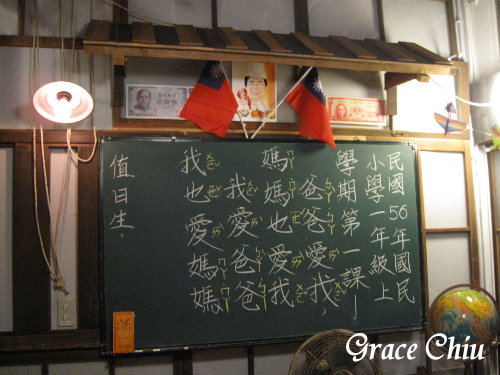 民國56年國民
小學一年級上
學期第一課—
爸爸愛我，
媽媽也愛我
我愛爸爸
我也愛媽媽
值日生.
Grace Chiu